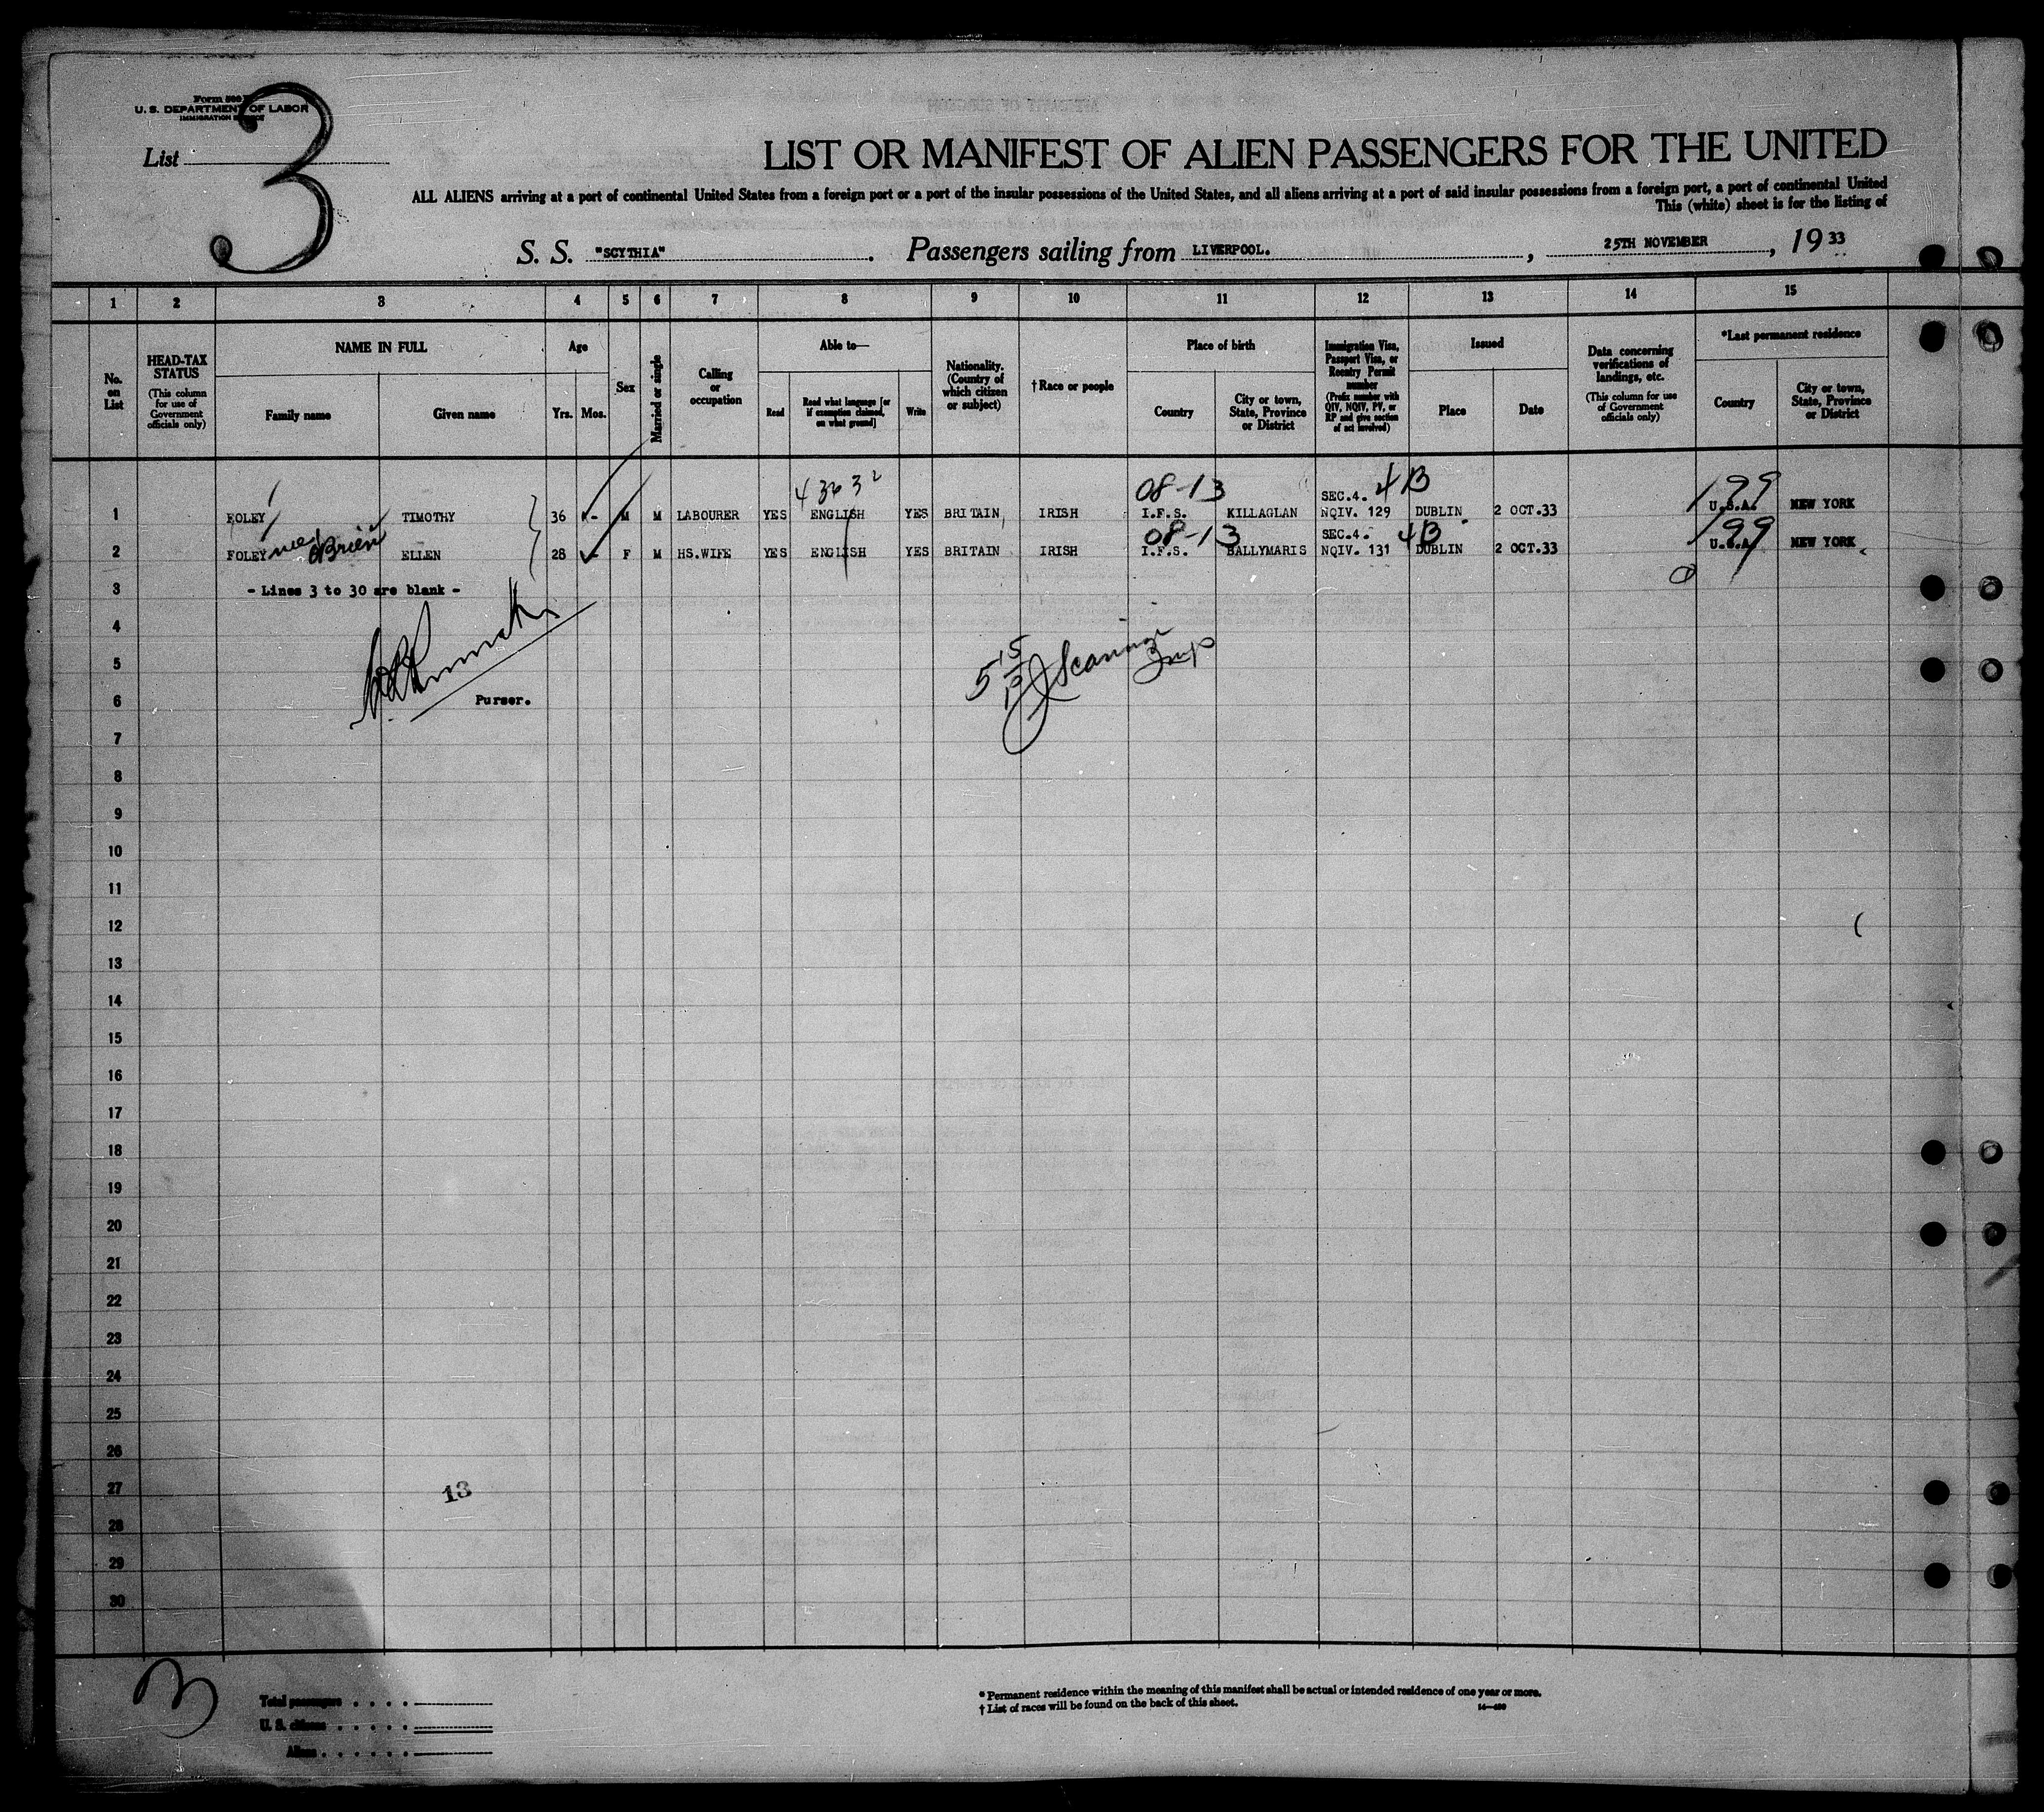 Form 500
U. S. DEPARTMENT OF LABOR
IMMIGRATION SERVICE
List
3
LIST OR MANIFEST OF ALIEN PASSENGERS FOR THE UNITED
ALL ALIENS arriving at a port of continental United States from a foreign port or a port of the insular possessions of the United States, and all aliens arriving at a port of said insular possessions from a foreign port, a port of continental United
This (white) sheet is for the listing of
S. S. "SCYTHIA". Passengers sailing from LIVERPOOL., 25TH NOVEMBER, 19 33
1 2 3 4 5 6 7 8 9 10 11 12 13 14 15
No. on List
HEAD-TAX STATUS
(This column for use of Government officials only)
NAME IN FULL
Family name Given name
Age
Yrs. Mos.
Sex
Married or single
Calling or occupation
Able to—
Read
Read what language [or if exemption claimed, on what ground]
Write
Nationality. (Country of which citizen or subject)
† Race or people
Place of birth
Country
City or town, State, Province or District
Immigration Visa, Passport Visa, or Reentry Permit number
(Prefix number with QIV, NQIV, PV, or RP and give section of act involved)
Issued
Place Date
Data concerning verifications of landings, etc.
(This column for use of Government officials only)
*Last permanent residence
Country
City or town, State, Province or District
08-13 SEC.4. 4B 199
1 FOLEY TIMOTHY 36 - M M LABOURER YES ENGLISH YES BRITAIN IRISH I.F.S. KILLAGLAN NQIV. 129 DUBLIN 2 OCT.33 U.S.A. NEW YORK
08-13 SEC.4. 4B 199
2 FOLEY nee O'Brien ELLEN 28 - F M HS.WIFE YES ENGLISH YES BRITAIN IRISH I.F.S. BALLYMARIS NQIV. 131 DUBLIN 2 OCT.33 U.S.A. NEW YORK
3 - Lines 3 to 30 are blank -
4
5
6 Purser.
7
8
9
10
11
12
13
14
15
16
17
18
19
20
21
22
23
24
25
26
27 13
28
29
30
3
Total passengers . . . .
U. S. citizens . . . . .
Aliens . . . . . .
* Permanent residence within the meaning of this manifest shall be actual or intended residence of one year or more.
† List of races will be found on the back of this sheet.